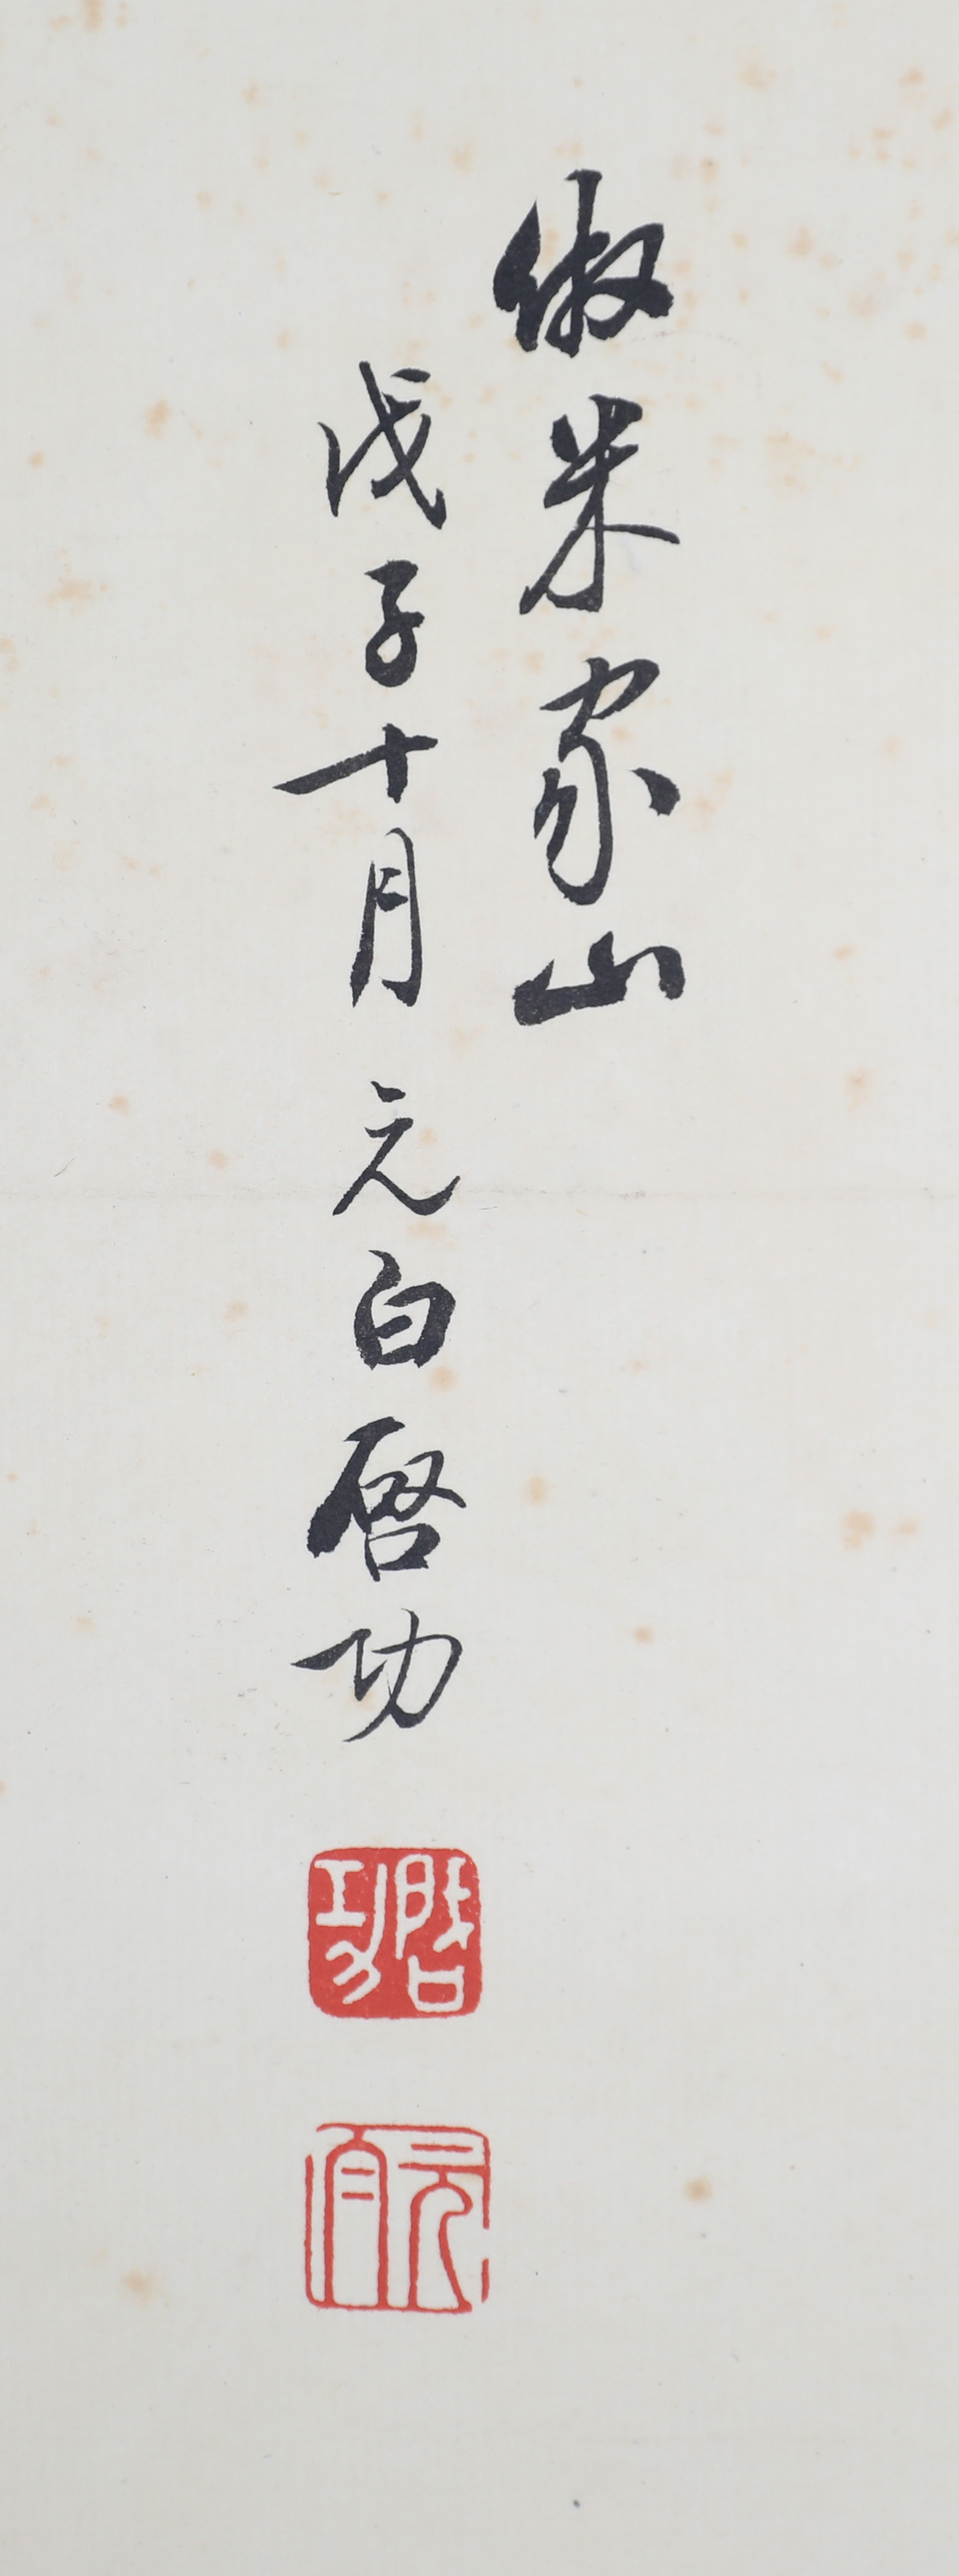 倣米家山
戊子十月元白啓功
啓功
元白